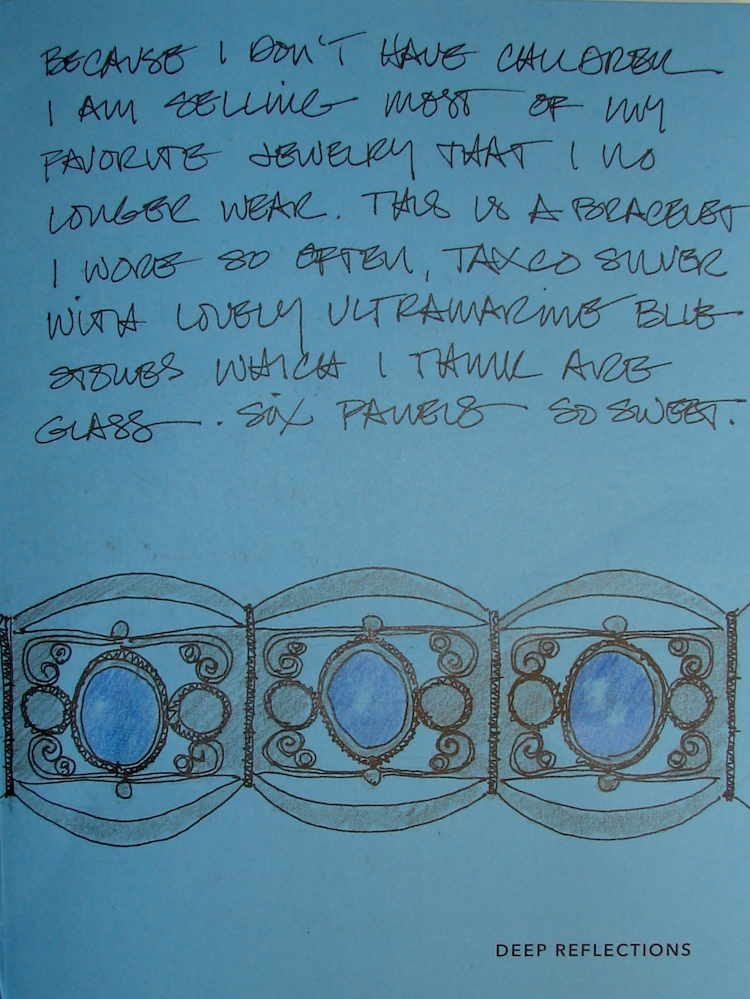 BECAUSE I DON'T HAVE CHILDREN
I AM SELLING MOST OF MY
FAVORITE JEWELRY THAT I NO
LONGER WEAR. THIS IS A BRACELET
I WORE SO OFTEN, TAXCO SILVER
WITH LOVELY ULTRAMARINE BLUE
STONES WHICH I THINK ARE
GLASS. SIX PANELS SO SWEET.
DEEP REFLECTIONS